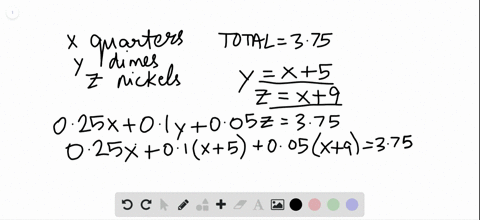 x quarters TOTAL = 3.75
y dimes
z nickels
y = x+5
z = x+9
0.25x+0.1y+0.05z = 3.75
0.25x+0.1(x+5)+0.05(x+9)=3.75